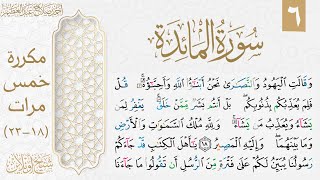 ٦
سُورَةُ المَائِدَةِ
مكررة
خمس
مرات
(١٨-٢٣)
وَقَالَتِ الْيَهُودُ وَالنَّصَٰرَىٰ نَحْنُ أَبْنَٰٓؤُا۟ اللَّهِ وَأَحِبَّٰٓؤُهُۥ ۚ قُلْ
فَلِمَ يُعَذِّبُكُم بِذُنُوبِكُم ۖ بَلْ أَنتُم بَشَرٌ مِّمَّنْ خَلَقَ ۚ يَغْفِرُ لِمَن
يَشَآءُ وَيُعَذِّبُ مَن يَشَآءُ ۚ وَلِلَّهِ مُلْكُ السَّمَٰوَٰتِ وَالْأَرْضِ
وَمَا بَيْنَهُمَا ۖ وَإِلَيْهِ الْمَصِيرُ ١٨ يَٰٓأَهْلَ الْكِتَٰبِ قَدْ جَآءَكُمْ
رَسُولُنَا يُبَيِّنُ لَكُمْ عَلَىٰ فَتْرَةٍ مِّنَ الرُّسُلِ أَن تَقُولُوا۟ مَا جَآءَنَا